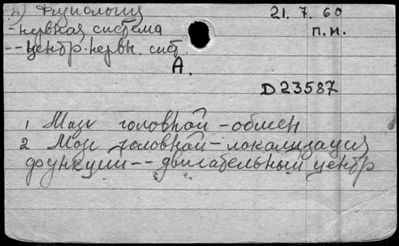 А) Физиология 21. 7. 60
-нервная система п.н.
--центр. нервн. сист.
А.
D 23587
1 Мозг головной - обмен
2 Мозг головной - локализация
функции -- двигательный центр